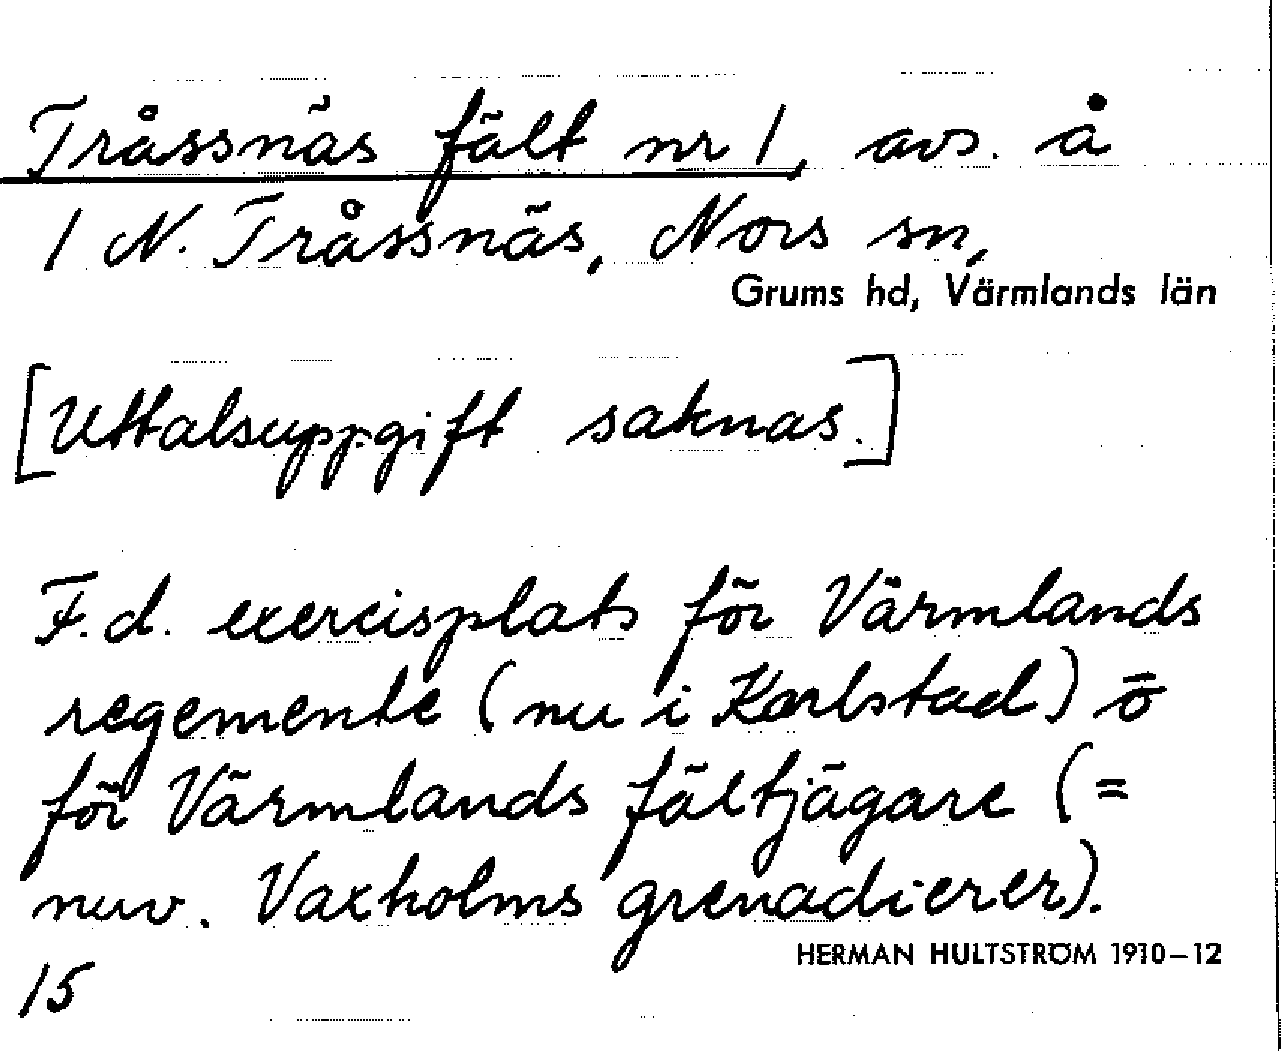 Tråssnäs fält nr 1, avs. å
1 N. Tråssnäs, Nors sn,
Grums hd, Värmlands län
[Uttalsuppgift saknas.]
F.d. exercisplats för Värmlands
regemente (nu i Karlstad) o
för Värmlands fältjägare (=
nuv. Vaxholms grenadierer).
HERMAN HULTSTRÖM 1910–12
15